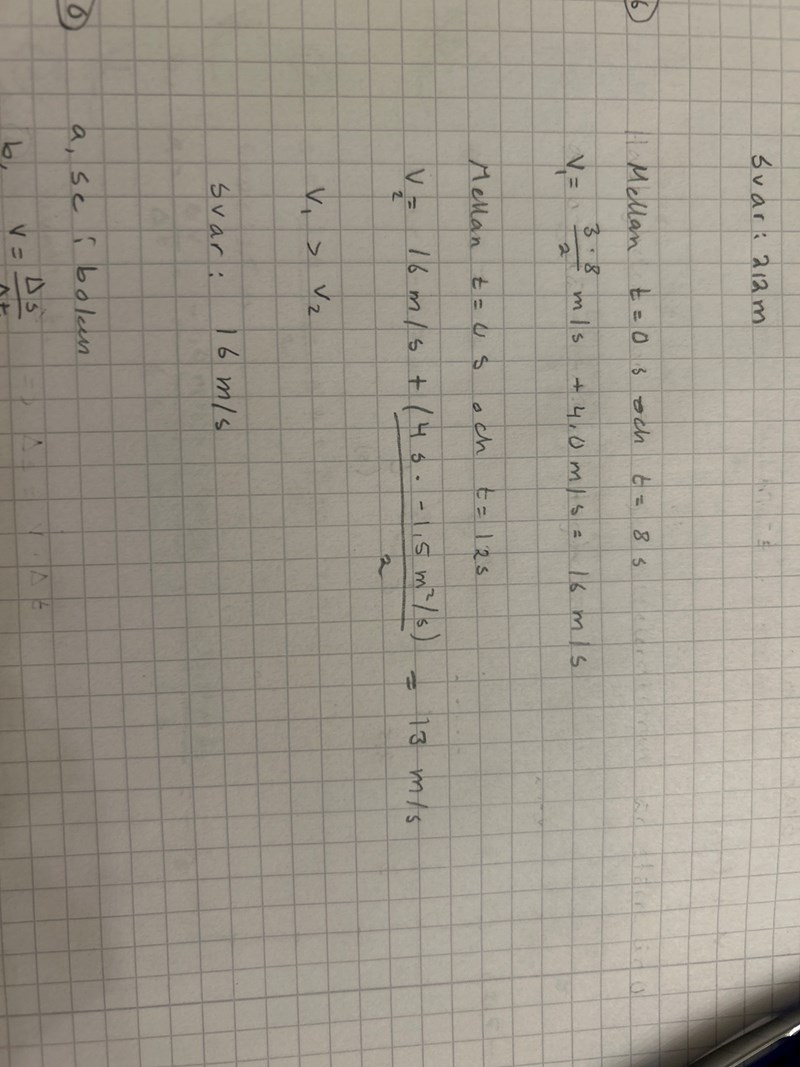 Svar: 212 m
6
Mellan t = 0 s och t = 8 s
V₁ = 3·8/2 m/s + 4,0 m/s = 16 m/s
Mellan t = 4 s och t = 12 s
V₂ = 16 m/s + (4 s · -1,5 m²/s)/2 = 13 m/s
V₁ > V₂
Svar: 16 m/s
6
a, se i boken
b, V = Δs/Δt